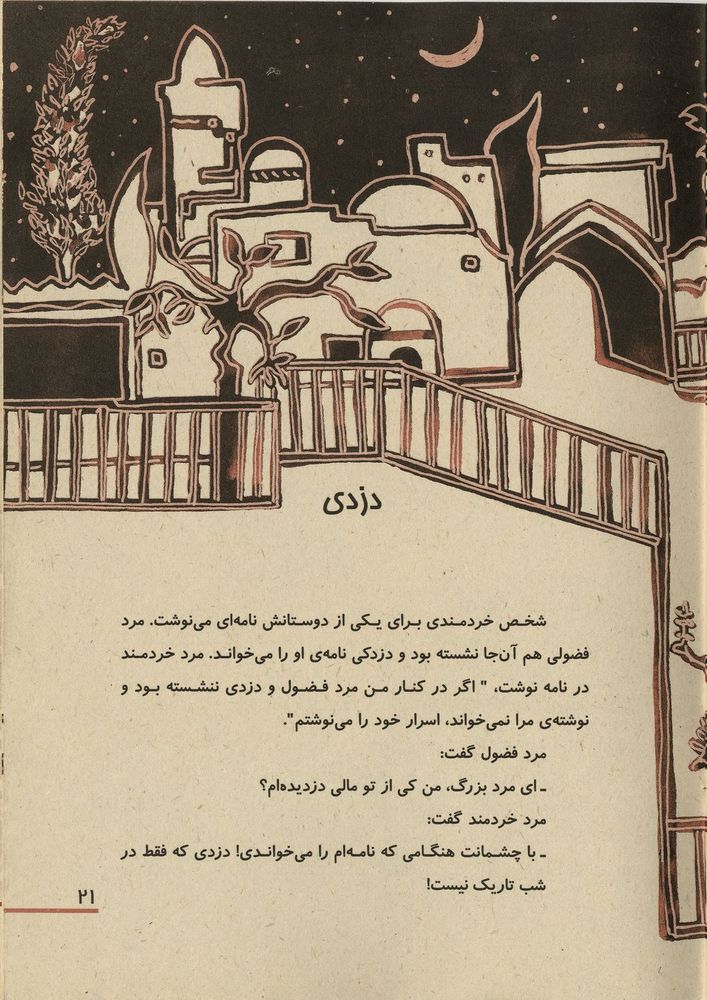 دزدی
شخص خردمندی برای یکی از دوستانش نامه‌ای می‌نوشت. مرد
فضولی هم آن‌جا نشسته بود و دزدکی نامه‌ی او را می‌خواند. مرد خردمند
در نامه نوشت، " اگر در کنار من مرد فضول و دزدی ننشسته بود و
نوشته‌ی مرا نمی‌خواند، اسرار خود را می‌نوشتم".
مرد فضول گفت:
ـ ای مرد بزرگ، من کی از تو مالی دزدیده‌ام؟
مرد خردمند گفت:
ـ با چشمانت هنگامی که نامه‌ام را می‌خواندی! دزدی که فقط در
شب تاریک نیست!
۲۱